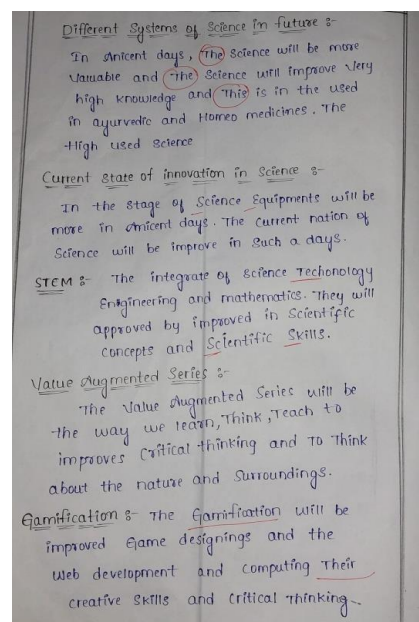 Different Systems of Science in future :-
In Anicent days, The Science will be more
Valuable and The Science will improve Very
high knowledge and This is in the used
in ayurvedic and Homeo medicines. The
High used Science
Current State of innovation in Science :-
In the Stage of Science Equipments will be
more in Anicent days. The Current nation of
Science will be improve in Such a days.
STEM :- The integrate of Science Techonology
Enigineering and mathematics. They will
approved by improved in Scientific
concepts and Scientific Skills.
Value Augmented Series :-
The Value Augmented Series will be
the way we learn, Think, Teach to
improves Critical thinking and To Think
about the nature and Surroundings.
Gamification :- The Gamification will be
improved Game designings and the
Web development and computing Their
creative Skills and Critical Thinking.